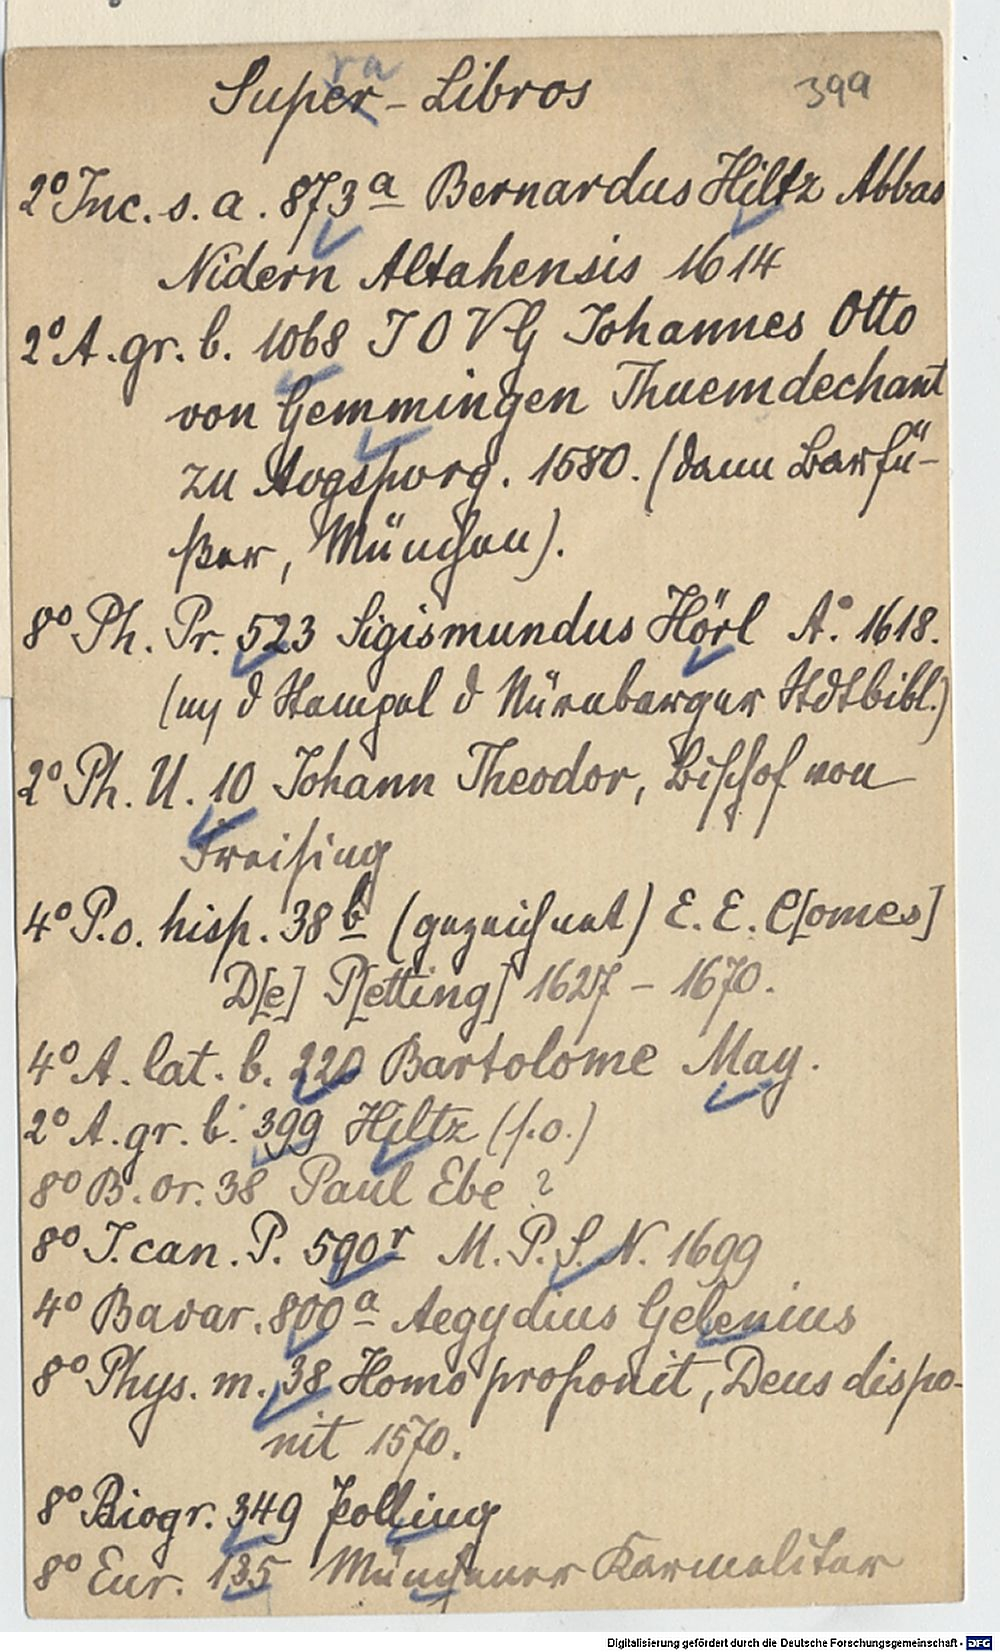 Supra-Libros 399
2° Inc. s. a. 873a Bernardus Hiltz Abbas
Nidern Altahensis 1614
2° A. gr. b. 1068 I O V G Johannes Otto
von Gemmingen Thuemdechant
zu Augspurg. 1580. (dann Barfü-
ßer, München).
8° Ph. Pr. 523 Sigismundus Hörl A.° 1618.
(m d Stempel d Nürnberger Stdtbibl.)
2° Ph. U. 10 Johann Theodor, Bischof von
Freising
4° P.o. hisp. 38 b (gezeichnet) E. E. C[omes]
D[e] P[etting] 1627 - 1670.
4° A. lat. b. 220 Bartolome May.
2° A. gr. b. 399 Hiltz (s.o.)
8° B. or. 38 Paul Ebe ?
8° J. can. P. 590r M. P. S. N. 1699
4° Bavar. 800a Aegydius Gelenius
8° Phys. m. 38 Homo proponit, Deus dispo-
nit 1570.
8° Biogr. 349 Polling
8° Eur. 135 Münchener Karmeliter
Digitalisierung gefördert durch die Deutsche Forschungsgemeinschaft - DFG